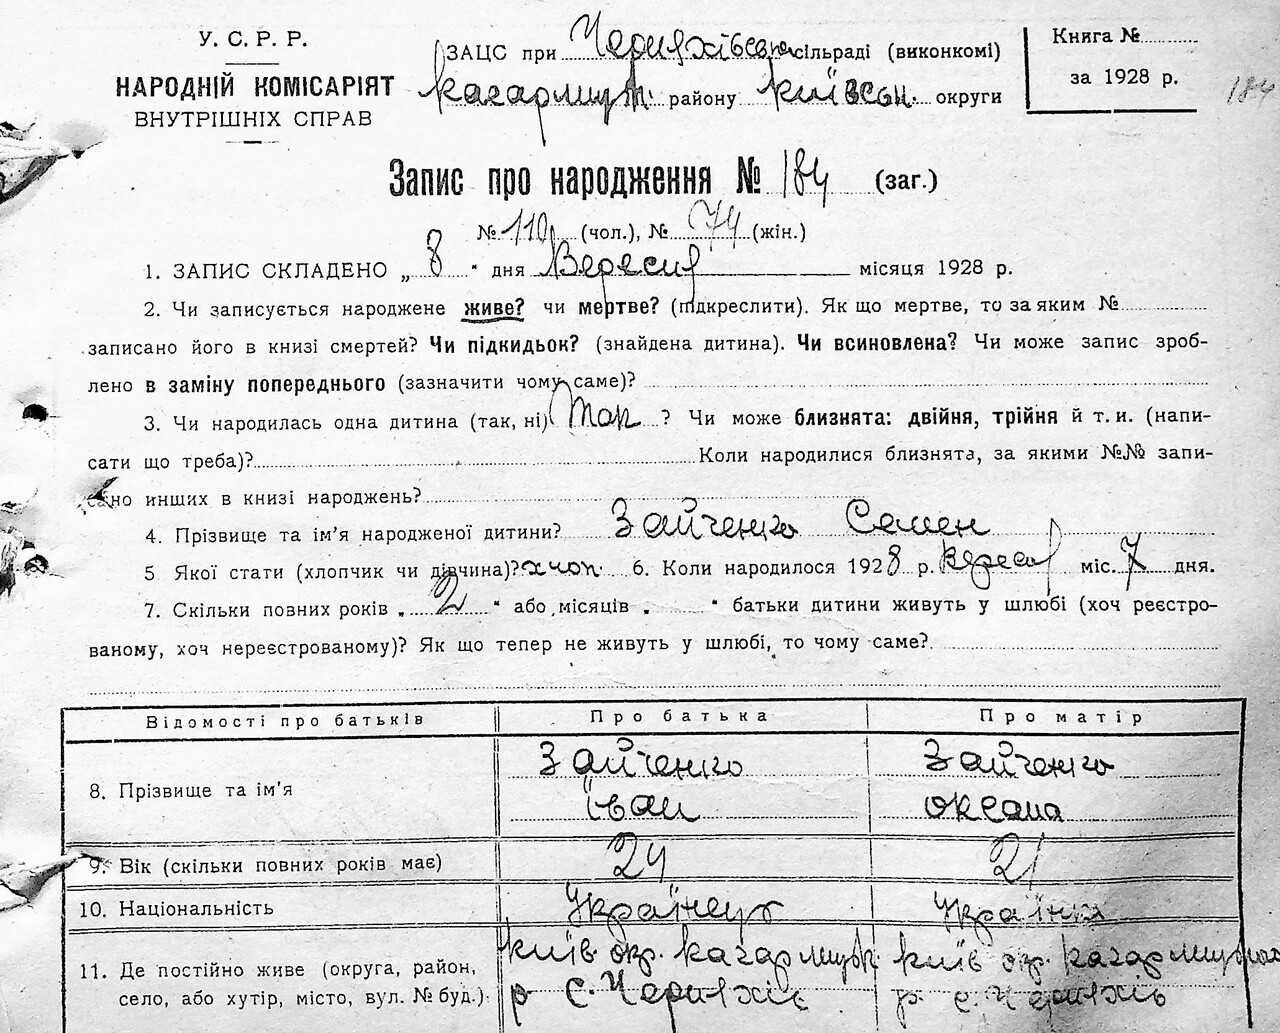 У. С. Р. Р.
НАРОДНІЙ КОМІСАРІЯТ
ВНУТРІШНІХ СПРАВ
ЗАЦС при Черняхівська сільраді (виконкомі)
Кагарлицьк. району Київськ. округи
Книга №
за 1928 р.
184
Запис про народження № 184 (заг.)
№ 110 (чол.), № 74 (жін.)
1. ЗАПИС СКЛАДЕНО „ 8 “ дня Вересня місяця 1928 р.
2. Чи записується народжене живе? чи мертве? (підкреслити). Як що мертве, то за яким №
записано його в книзі смертей? Чи підкидьок? (знайдена дитина). Чи всиновлена? Чи може запис зроб-
лено в заміну попереднього (зазначити чому саме)?
3. Чи народилась одна дитина (так, ні) Так ? Чи може близнята: двійня, трійня й т. и. (напи-
сати що треба)? Коли народилися близнята, за якими №№ запи-
сано инших в книзі народжень?
4. Прізвище та ім’я народженої дитини? Зайченко Семен
5 Якої стати (хлопчик чи дівчина)? хлоп. 6. Коли народилося 1928 р. Вересня міс. 7 дня.
7. Скільки повних років „ 2 “ або місяців „ “ батьки дитини живуть у шлюбі (хоч реєстро-
ваному, хоч нереєстрованому)? Як що тепер не живуть у шлюбі, то чому саме?
Відомості про батьків Про батька Про матір
8. Прізвище та ім’я Зайченко Іван Зайченко Оксана
9. Вік (скільки повних років має) 24 21
10. Національність Українець Українка
11. Де постійно живе (округа, район, Київ. окр. Кагарлицьк Київ окр. Кагарлицьк
село, або хутір, місто, вул. № буд.) р с. Черняхів р. с. Черняхів